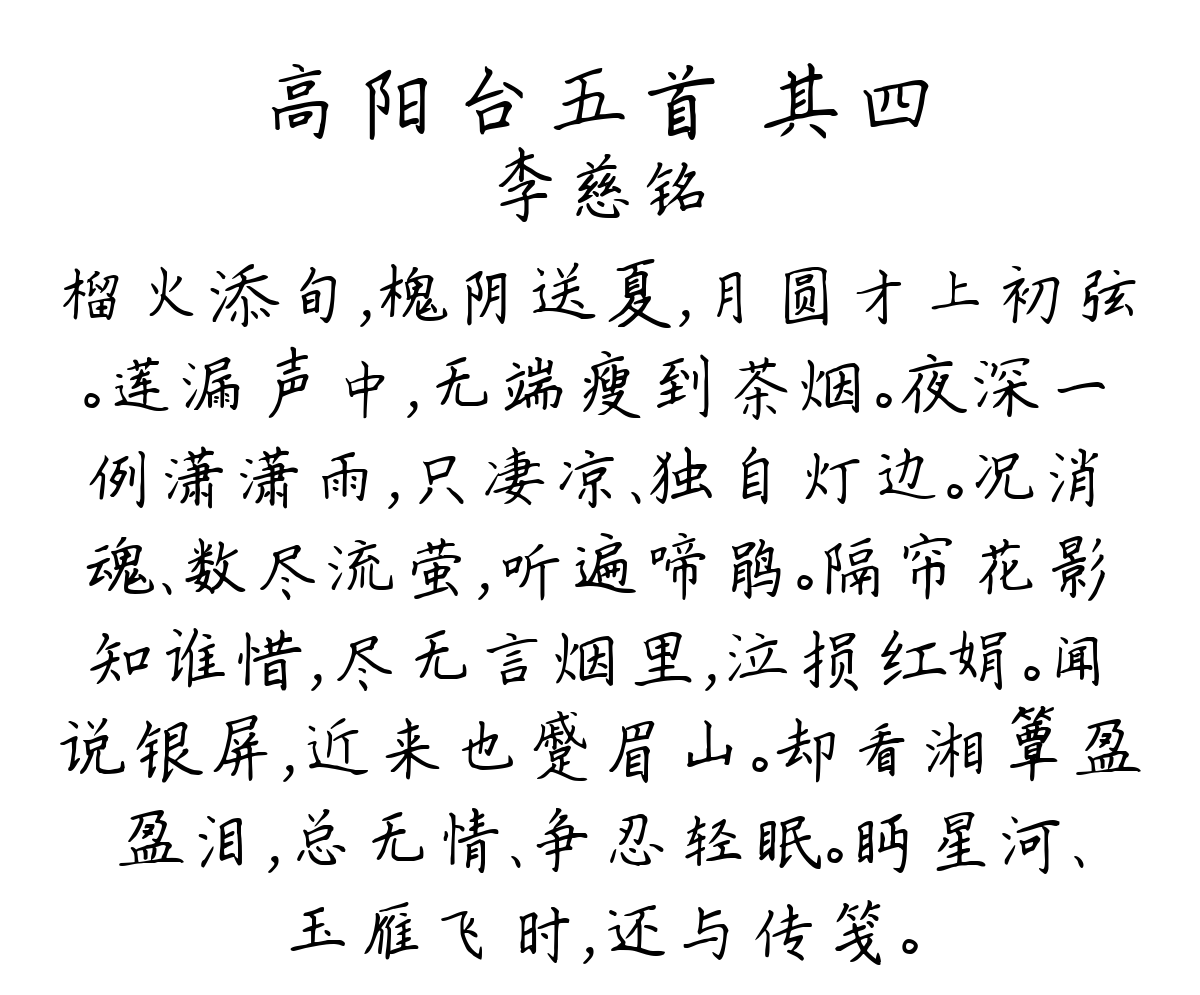 高阳台五首 其四
李慈铭
榴火添旬,槐阴送夏,月圆才上初弦
。莲漏声中,无端瘦到茶烟。夜深一
例潇潇雨,只凄凉、独自灯边。况消
魂、数尽流萤,听遍啼鹃。隔帘花影
知谁惜,尽无言烟里,泣损红娟。闻
说银屏,近来也蹙眉山。却看湘簟盈
盈泪,总无情、争忍轻眠。眄星河、
玉雁飞时,还与传笺。